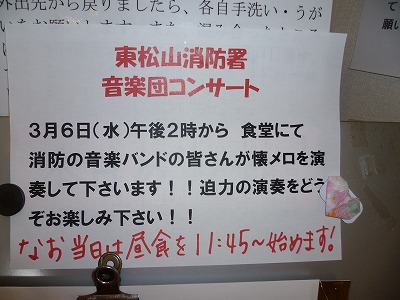 外出先から戻りましたら、各自手洗い・うが
東松山消防署
音楽団コンサート
3月6日(水)午後2時から 食堂にて
消防の音楽バンドの皆さんが懐メロを演
奏して下さいます!!迫力の演奏をどう
ぞお楽しみ下さい!!
なお当日は昼食を11:45~始めます!